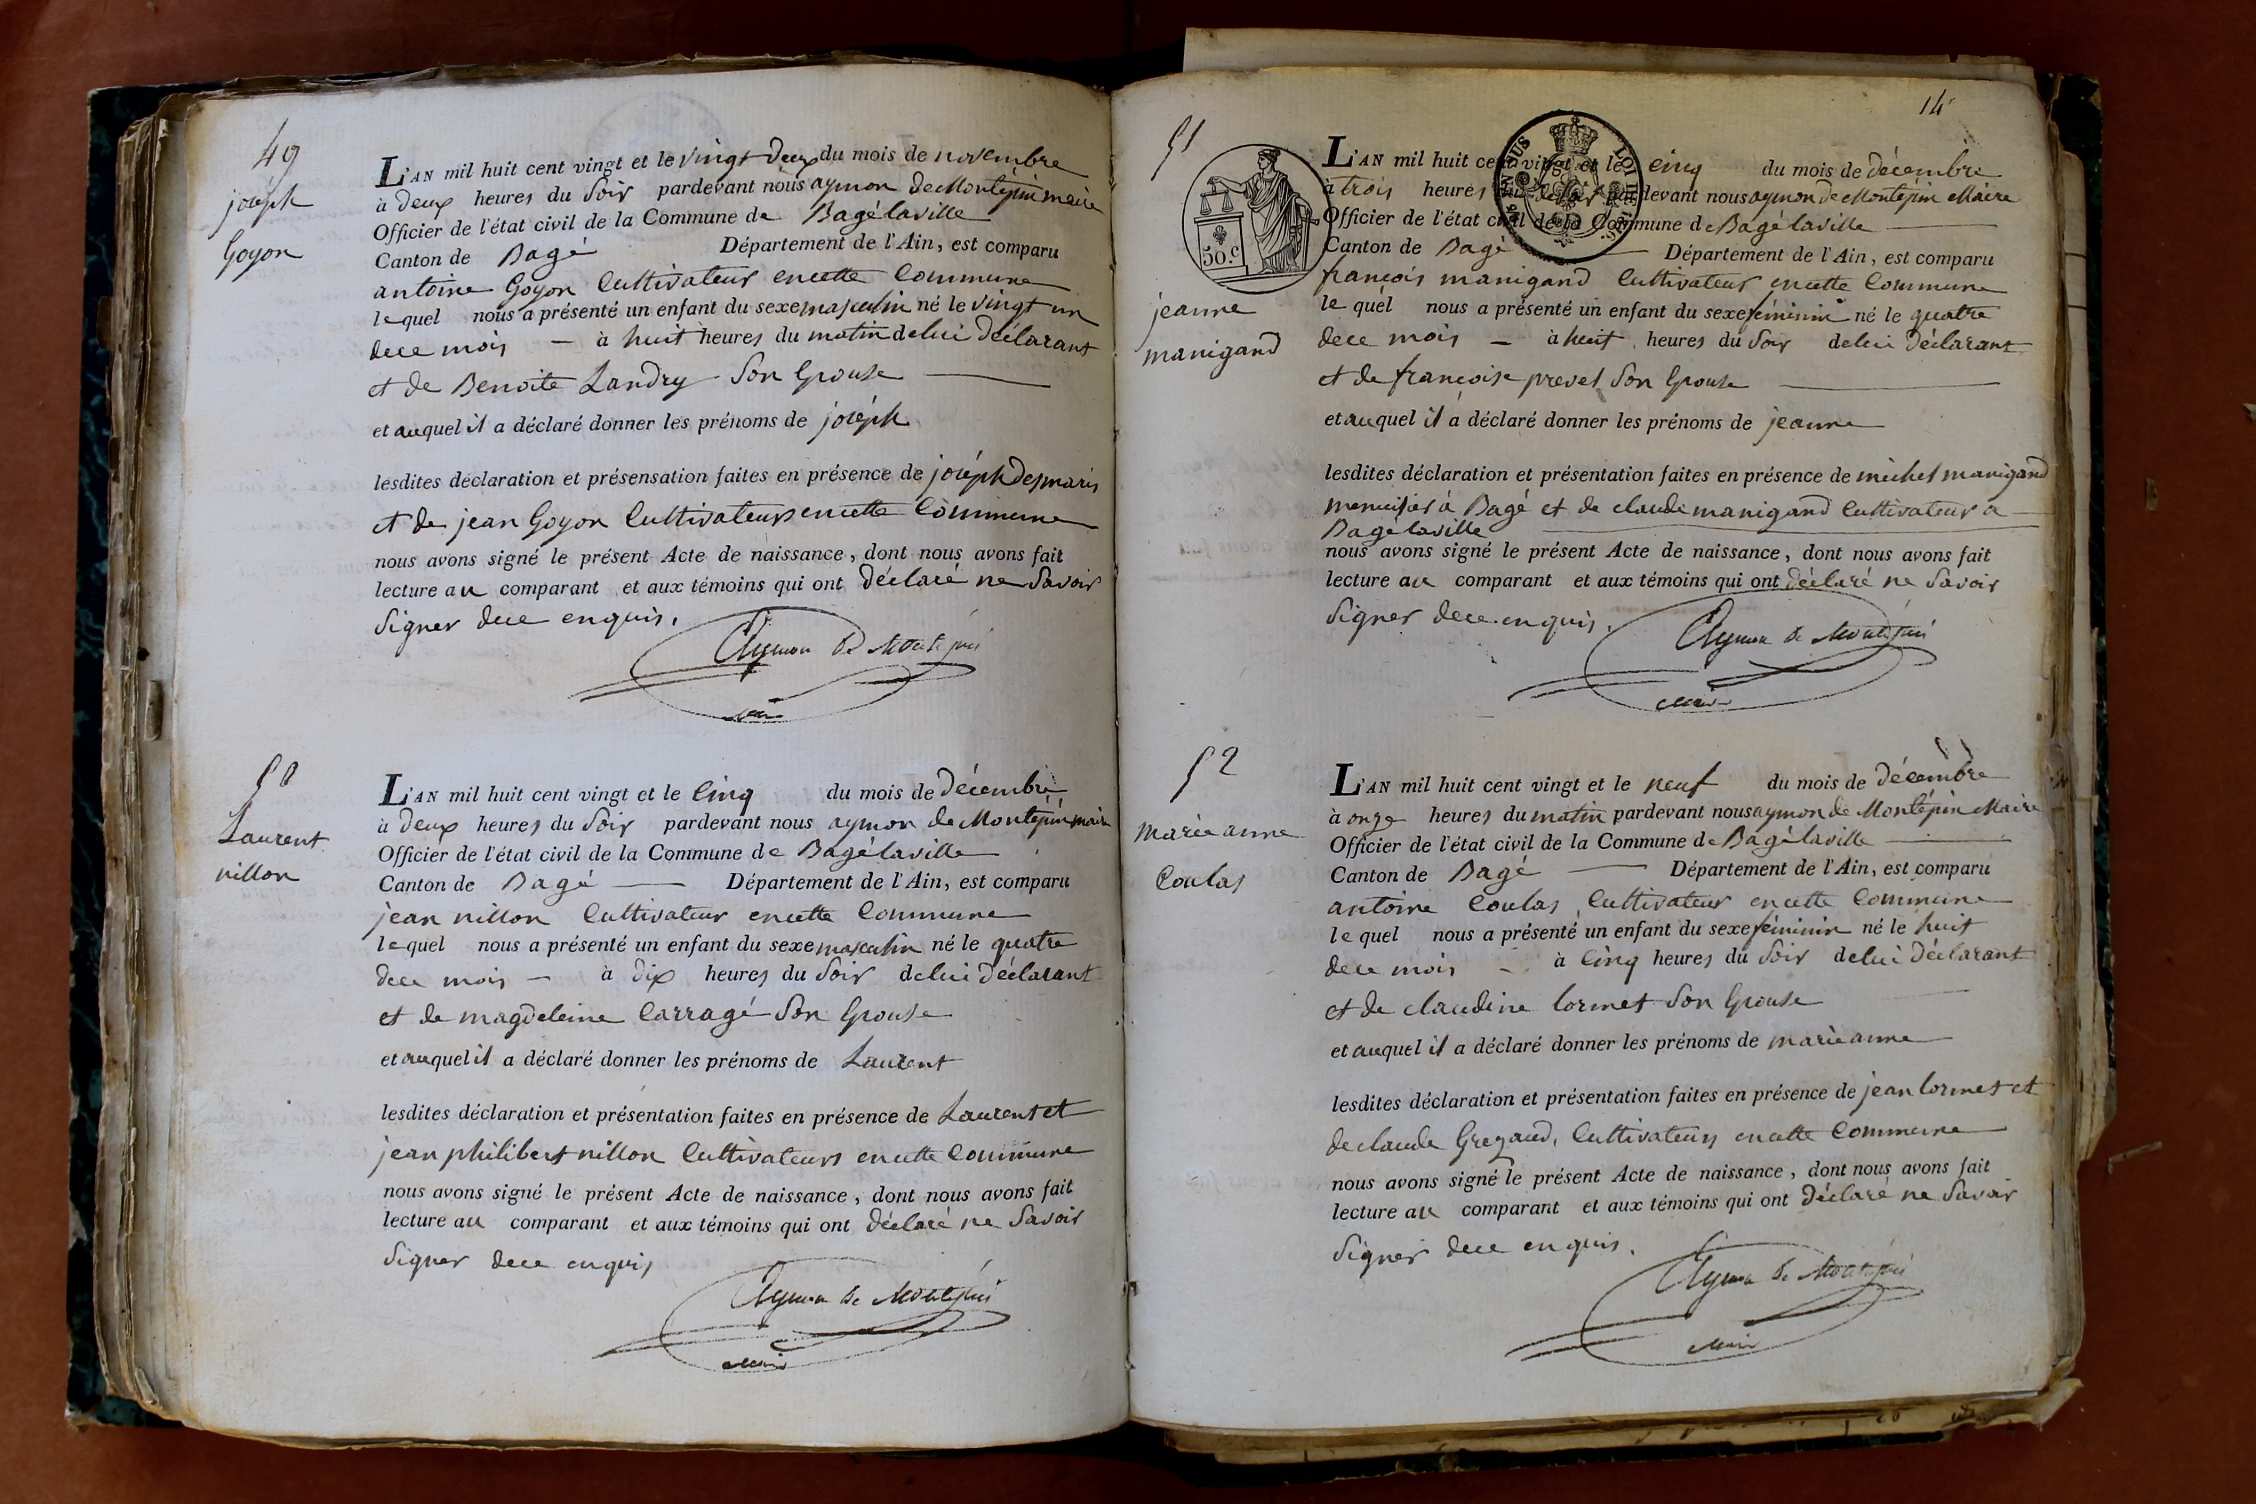 49
joséph
Goyon
L'AN mil huit cent vingt et le vingt deux du mois de novembre
à deux heures du soir pardevant nous aymon de Montépin maire
Officier de l'état civil de la Commune de Bagélaville
Canton de Bagé Département de l'Ain, est comparu
antoine Goyon Cultivateur en cette Commune
le quel nous a présenté un enfant du sexe masculin né le vingt un
de ce mois – à huit heures du matin de lui déclarant
et de Benoite Landry son Epouse
et auquel il a déclaré donner les prénoms de joséph
lesdites déclaration et présensation faites en présence de joséph desmaris
et de jean Goyon Cultivateurs en cette Commune
nous avons signé le présent Acte de naissance, dont nous avons fait
lecture au comparant et aux témoins qui ont déclaré ne savoir
signer de ce enquis.
Aymon de Montépin
Maire
50
Laurent
nillon
L'AN mil huit cent vingt et le Cinq du mois de décembre
à deux heures du soir pardevant nous aymon de Montépin maire
Officier de l'état civil de la Commune de Bagélaville
Canton de Bagé — Département de l'Ain, est comparu
jean nillon Cultivateur en cette Commune
le quel nous a présenté un enfant du sexe masculin né le quatre
de ce mois – à dix heures du soir de lui déclarant
et de magdeleine Carragé son Epouse
et auquel il a déclaré donner les prénoms de Laurent
lesdites déclaration et présentation faites en présence de Laurent et
jean philibert nillon Cultivateurs en cette Commune
nous avons signé le présent Acte de naissance, dont nous avons fait
lecture au comparant et aux témoins qui ont déclaré ne savoir
signer de ce enquis
Aymon de Montépin
Maire
14
51
50.c
LOI
jeanne
manigand
L'AN mil huit cent vingt et le cinq du mois de décembre
à trois heures du soir pardevant nous aymon de Montépin Maire
Officier de l'état civil de la Commune de Bagélaville
Canton de Bagé — Département de l'Ain, est comparu
francois manigand Cultivateur en cette Commune
le quel nous a présenté un enfant du sexe féminin né le quatre
de ce mois – à huit heures du soir de lui déclarant
et de francoise prevel son Epouse
et auquel il a déclaré donner les prénoms de jeanne
lesdites déclaration et présentation faites en présence de michel manigand
menuisier à Bagé et de claude manigand Cultivateur a
Bagélaville
nous avons signé le présent Acte de naissance, dont nous avons fait
lecture au comparant et aux témoins qui ont déclaré ne savoir
signer de ce enquis.
Aymon de Montépin
Maire
52
marie anne
Coulas
L'AN mil huit cent vingt et le neuf du mois de décembre
à onze heures du matin pardevant nous aymon de Montépin Maire
Officier de l'état civil de la Commune de Bagélaville
Canton de Bagé — Département de l'Ain, est comparu
antoine Coulas Cultivateur en cette Commune
le quel nous a présenté un enfant du sexe féminin né le huit
de ce mois – à Cinq heures du soir de lui déclarant
et de claudine lormet son Epouse
et auquel il a déclaré donner les prénoms de marie anne
lesdites déclaration et présentation faites en présence de jean lormet et
de claude Gregaud, Cultivateurs en cette Commune
nous avons signé le présent Acte de naissance, dont nous avons fait
lecture au comparant et aux témoins qui ont déclaré ne savoir
signer de ce enquis.
Aymon de Montépin
Maire